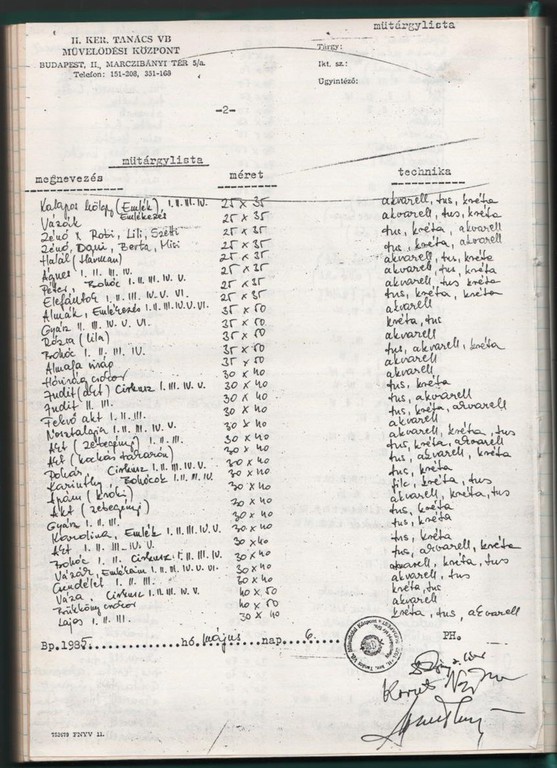 műtárgylista
II. KER. TANÁCS VB
MŰVELŐDÉSI KÖZPONT
BUDAPEST, II., MARCZIBÁNYI TÉR 5/a.
Telefon: 151-208, 351-168
Tárgy:
Ikt. sz.:
Ügyintéző:
-2-
műtárgylista
megnevezés méret technika
Kalapos hölgy (Emlék), I. II. III. IV. 25 x 35 akvarell, tus, kréta
Vázák Emlékezés 25 x 35 akvarell, tus, kréta
Zénó, Robi, Lili, Szetti 25 x 35 tus, kréta, akvarell
Zénó, Dani, Berta, Misi 25 x 35 tus, kréta, akvarell
Halál (Hárman) 25 x 35 akvarell, tus, kréta
Ágnes I. II. III. IV. 25 x 35 akvarell, tus, kréta
Péter, Bohóc I. II. III. IV. V. 25 x 35 akvarell, tus, kréta
Elefántok I. II. III. IV. V. VI. 25 x 35 tus, kréta, kréta
Almák, Emlékezés I. II. III. IV. V. VI. 35 x 50 akvarell
Gyár II. III. IV. V. VI. 35 x 50 kréta, tus
Rózsa (lila) 35 x 50 akvarell
Bohóc I. II. III. IV. 35 x 50 tus, akvarell, kréta
Almafa virág 35 x 50 akvarell
Hóvirág csokor 30 x 40 akvarell
Judit (akt) Cirkusz I. II. III. IV. V. 30 x 40 tus, kréta
Judit II. III. 30 x 40 tus, akvarell
Fekvő akt I. II. III. 30 x 40 tus, kréta, akvarell
Nosztalgia I. II. III. IV. V. 30 x 40 akvarell
Akt (zebegényi) I. II. III. 30 x 40 akvarell, kréta, tus
Akt (kockás takarón) 30 x 40 tus, kréta, akvarell
Pohár Cirkusz I. II. III. IV. V. 30 x 40 tus, akvarell, kréta
Karinthy, Bohócok I. II. III. IV. 30 x 40 tus, kréta
Apám (kroki) 30 x 40 filc, kréta, tus
Akt (zebegényi) 30 x 40 akvarell, kréta, tus
Gyár I. II. III. 30 x 40 tus, kréta
Karolina, Emlék I. II. III. IV. V. 30 x 40 tus, kréta
Akt I. II. III. IV. V. 30 x 40 tus, kréta
Bohóc I. II. Cirkusz I. II. III. IV. 30 x 40 tus, akvarell, kréta
Vázák, Emlékeim I. II. III. IV. V. VI. 30 x 40 akvarell, kréta, tus
Csendélet I. II. III. 30 x 40 akvarell, tus
Váza Cirkusz I. II. III. IV. V. 40 x 50 kréta, tus
csokor 40 x 50 akvarell
Lajos I. II. III. 30 x 40 kréta, tus, akvarell
Bp. 1985. hó. május nap. 6. PH.
753673 FNYV 11.